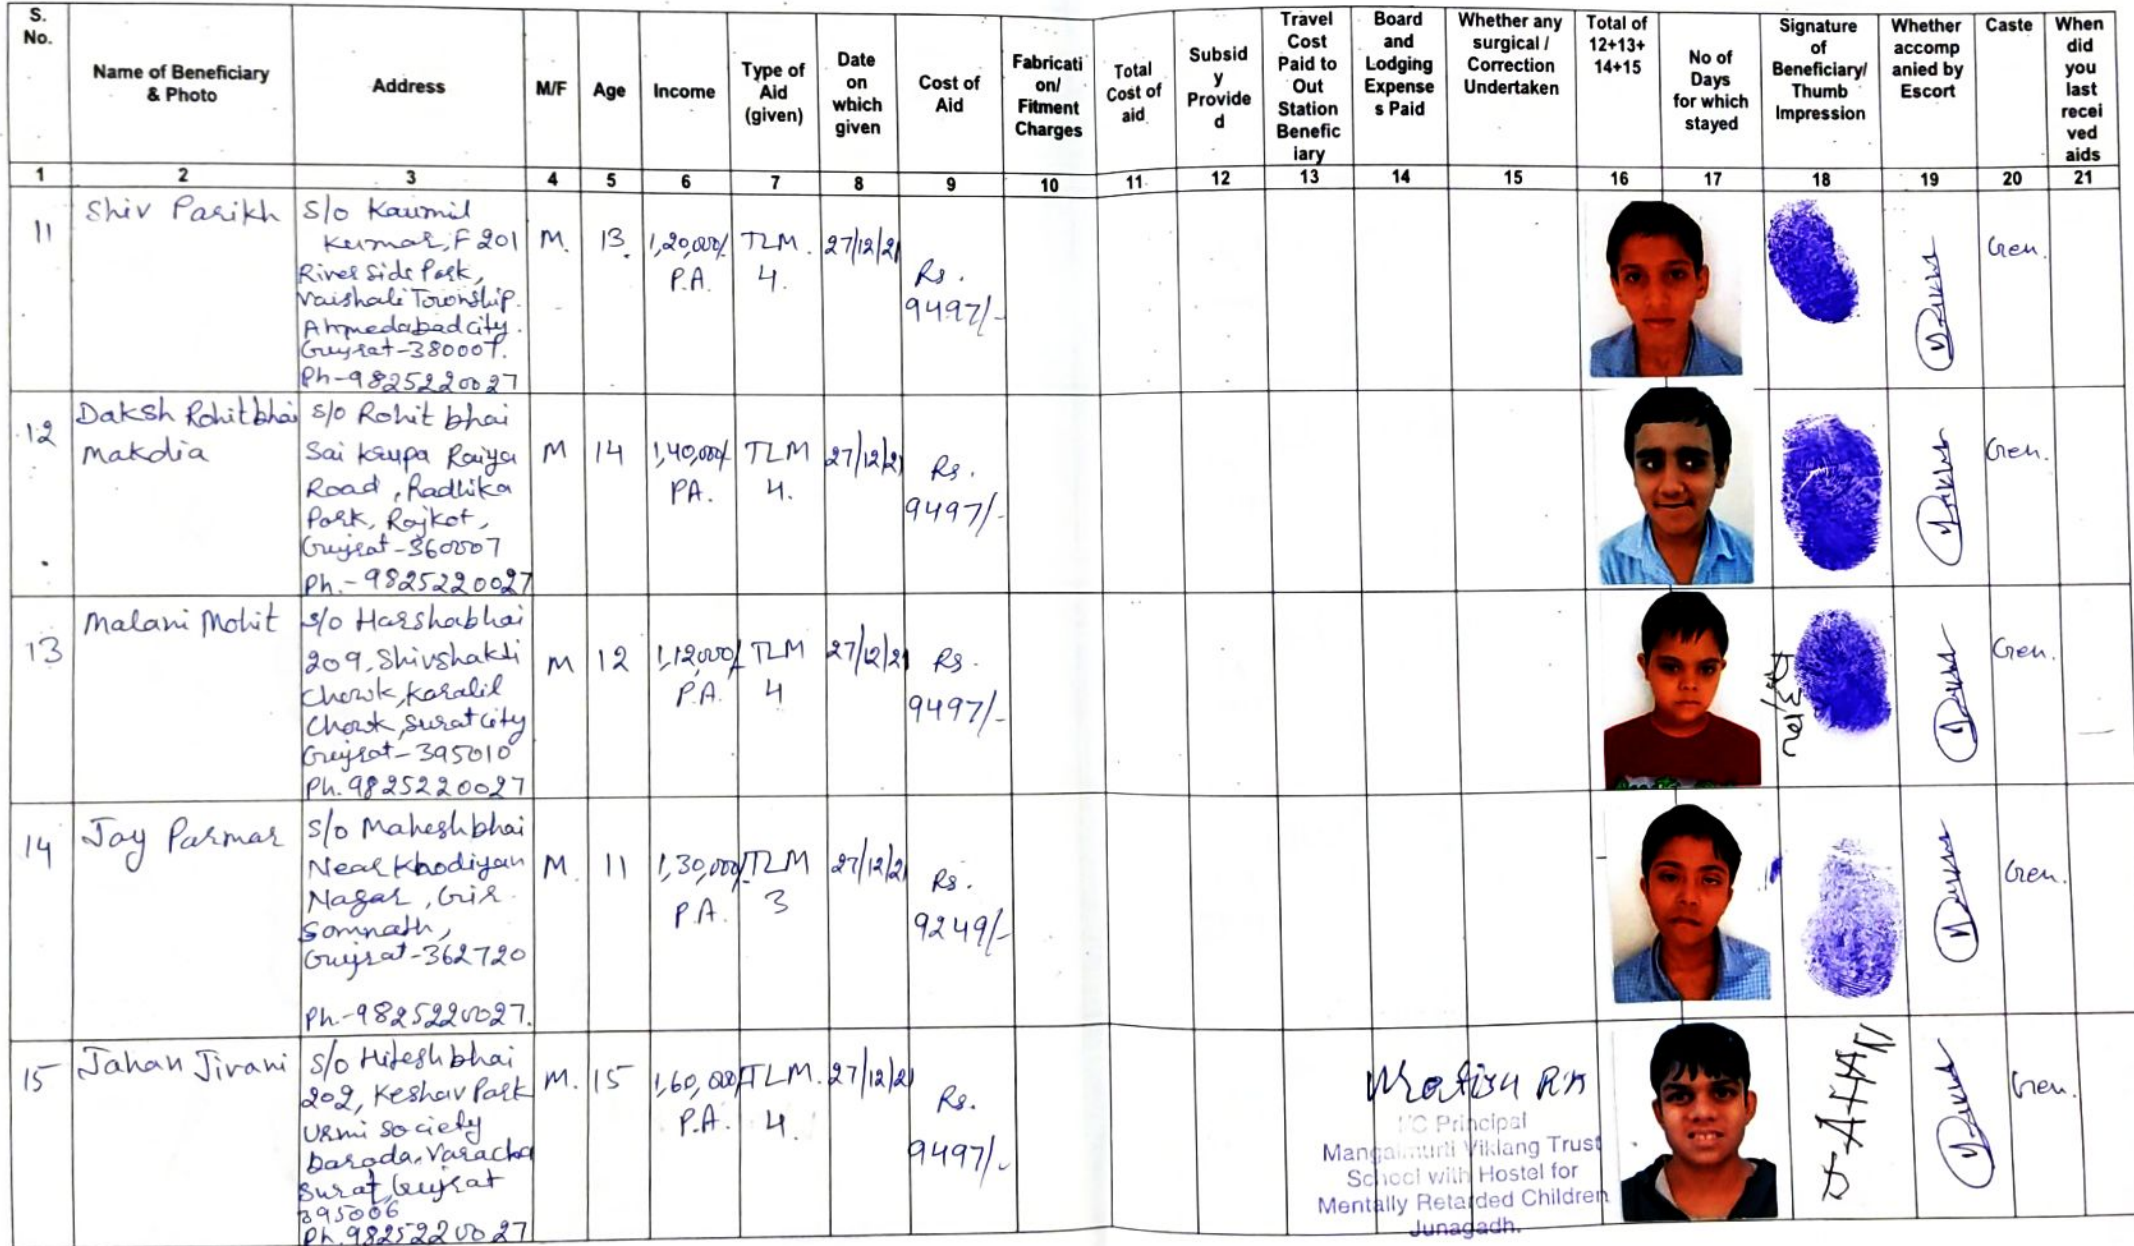 S. No.
Name of Beneficiary & Photo
Address
M/F
Age
Income
Type of Aid (given)
Date on which given
Cost of Aid
Fabricati on/ Fitment Charges
Total Cost of aid
Subsid y Provide d
Travel Cost Paid to Out Station Benefic iary
Board and Lodging Expense s Paid
Whether any surgical / Correction Undertaken
Total of 12+13+ 14+15
No of Days for which stayed
Signature of Beneficiary/ Thumb Impression
Whether accomp anied by Escort
Caste
When did you last recei ved aids
1 2 3 4 5 6 7 8 9 10 11 12 13 14 15 16 17 18 19 20 21
11
Shiv Parikh
S/o Kaumil
Kumar, F 201
River Side Park,
Vaishali Township.
Ahmedabad city.
Gujrat-380007.
Ph-9825220027
M.
13
1,20,000/
P.A.
TLM.
4.
27/12/21
Rs.
9497/-
Gen.
12
Daksh Rohitbhai
Makdia
S/o Rohit bhai
Sai Krupa Raiya
Road, Radhika
Park, Rajkot,
Gujrat-360007
Ph.-9825220027
M
14
1,40,000/
PA.
TLM
4.
27/12/21
Rs.
9497/-
Gen.
13
Malani Mohit
S/o Harshabhai
209, Shivshakti
Chowk, Karalil
Chowk, Surat city
Gujrat-395010
Ph. 9825220027
M
12
1,12,000/
P.A.
TLM
4
27/12/21
Rs.
9497/-
Gen.
14
Jay Parmar
S/o Maheshbhai
Near Khodiyan
Nagar, Gir
Somnath,
Gujrat-362720
Ph.-9825220027.
M.
11
1,30,000/
P.A.
TLM
3
27/12/21
Rs.
9249/-
Gen.
15
Jahan Jivani
S/o Hiteshbhai
202, Keshav Park
Urmi Society
baroda, Varacha
Surat, Gujrat
395006
Ph. 9825220027
M.
15
1,60,000/
P.A.
TLM.
4.
27/12/21
Rs.
9497/-
JAHAN
Gen.
I/C Principal
Mangalmurti Viklang Trust
School with Hostel for
Mentally Retarded Children
Junagadh.